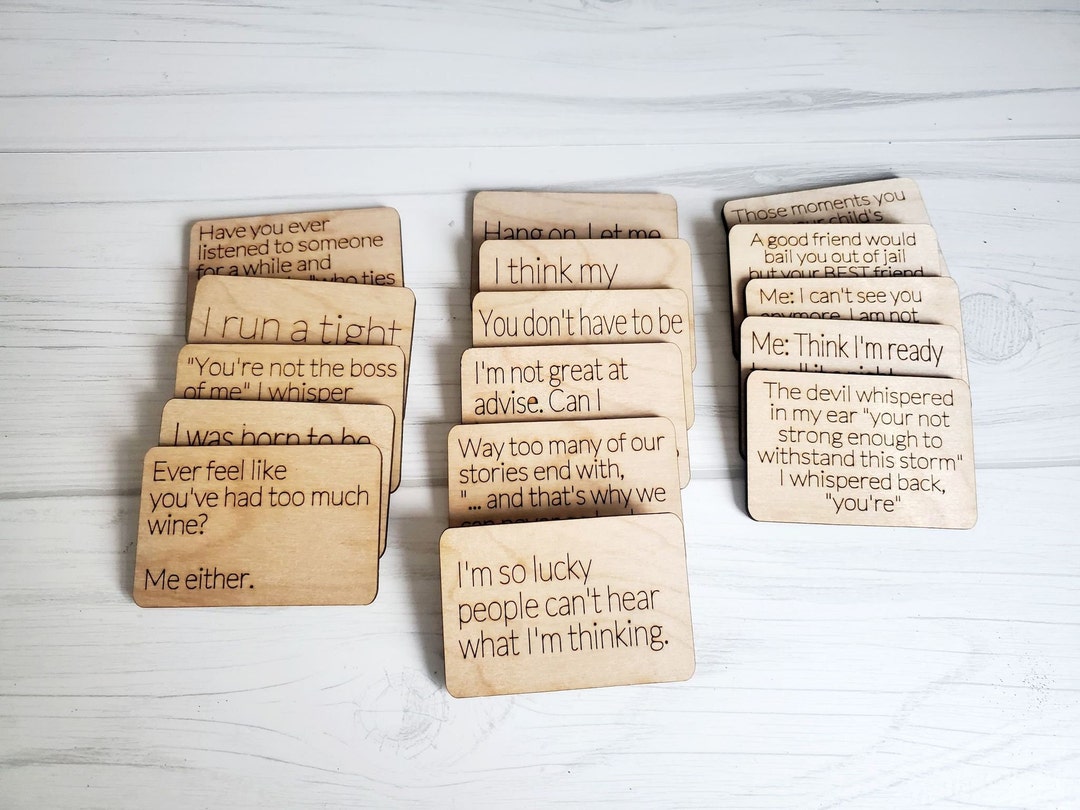 Have you ever
listened to someone
for a while and
"who ties
I run a tight
"You're not the boss
of me" I whisper
I was born to be
Ever feel like
you've had too much
wine?
Me either.
Hang on. Let me
I think my
You don't have to be
I'm not great at
advise. Can I
Way too many of our
stories end with,
"... and that's why we
can never
I'm so lucky
people can't hear
what I'm thinking.
Those moments you
child's
A good friend would
bail you out of jail
but your BEST friend
Me: I can't see you
anymore. I am not
Me: Think I'm ready
The devil whispered
in my ear "your not
strong enough to
withstand this storm"
I whispered back,
"you're"